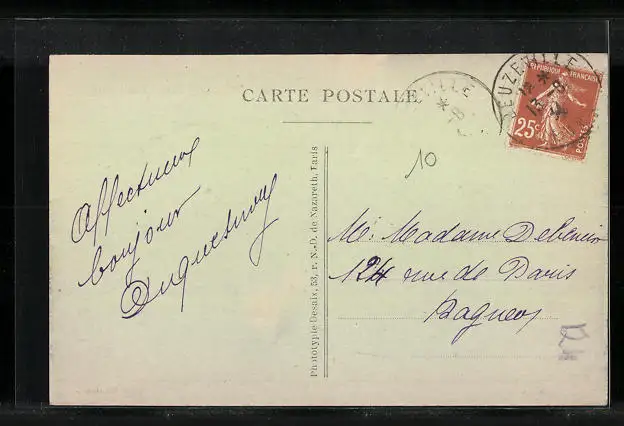 CARTE POSTALE
Affectueux
bonjour
Duquesnoy
Phototypie Desaix, 53, r. N.-D. de Nazareth, Paris
10
M. Madame
124 rue de Paris
Bagneux
REPUBLIQUE FRANÇAISE
25c
POSTES
DEUZEVILLE
VILLE